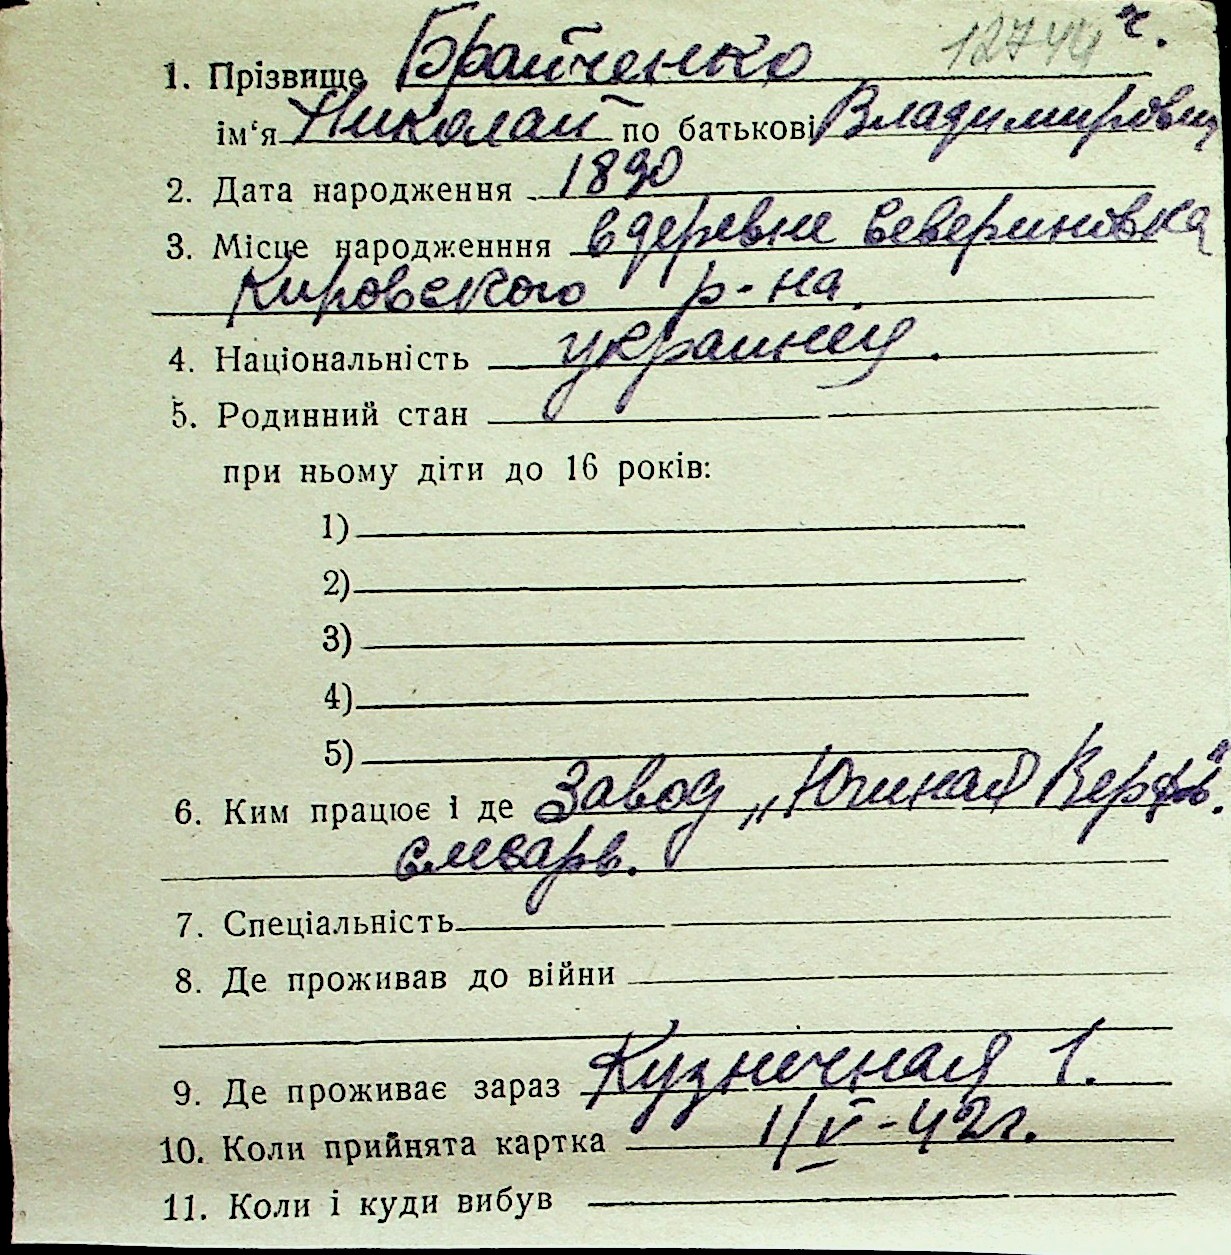 12744 ч.
1. Прізвище Брайченко
ім‘я Николай по батькові Владимирович
2. Дата народження 1890
3. Місце народженння в деревне Севериновка
Кировского р-на
4. Національність украинец.
5. Родинний стан
при ньому діти до 16 років:
1)
2)
3)
4)
5)
6. Ким працює і де Завод „Южная Верфь“.
слесарь.
7. Спеціальність
8. Де проживав до війни
9. Де проживає зараз Кузнечная 1.
10. Коли прийнята картка 1/V-42г.
11. Коли і куди вибув